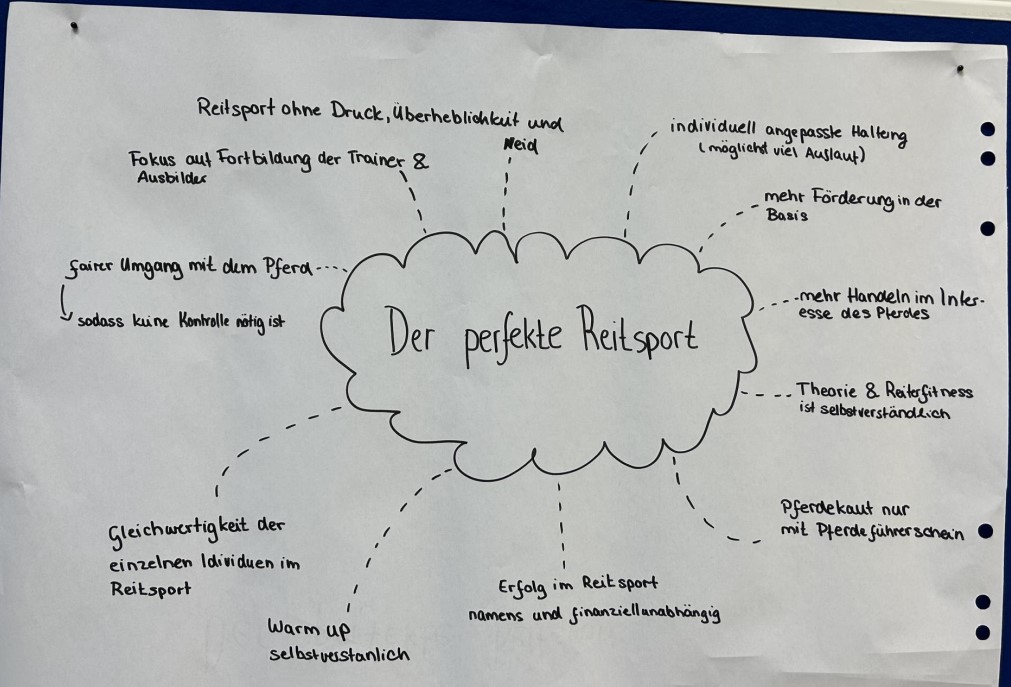 Reitsport ohne Druck, Überheblichkeit und
Neid
Fokus auf Fortbildung der Trainer &
Ausbilder
individuell angepasste Haltung
(möglichst viel Auslauf)
mehr Förderung in der
Basis
fairer Umgang mit dem Pferd
sodass keine Kontrolle nötig ist
Der perfekte Reitsport
mehr Handeln im Inter-
esse des Pferdes
Theorie & Reiterfitness
ist selbstverständlich
Pferdekauf nur
mit Pferdeführerschein
Gleichwertigkeit der
einzelnen Idividuen im
Reitsport
Erfolg im Reitsport
namens und finanziellunabhängig
Warm up
selbstverstänlich